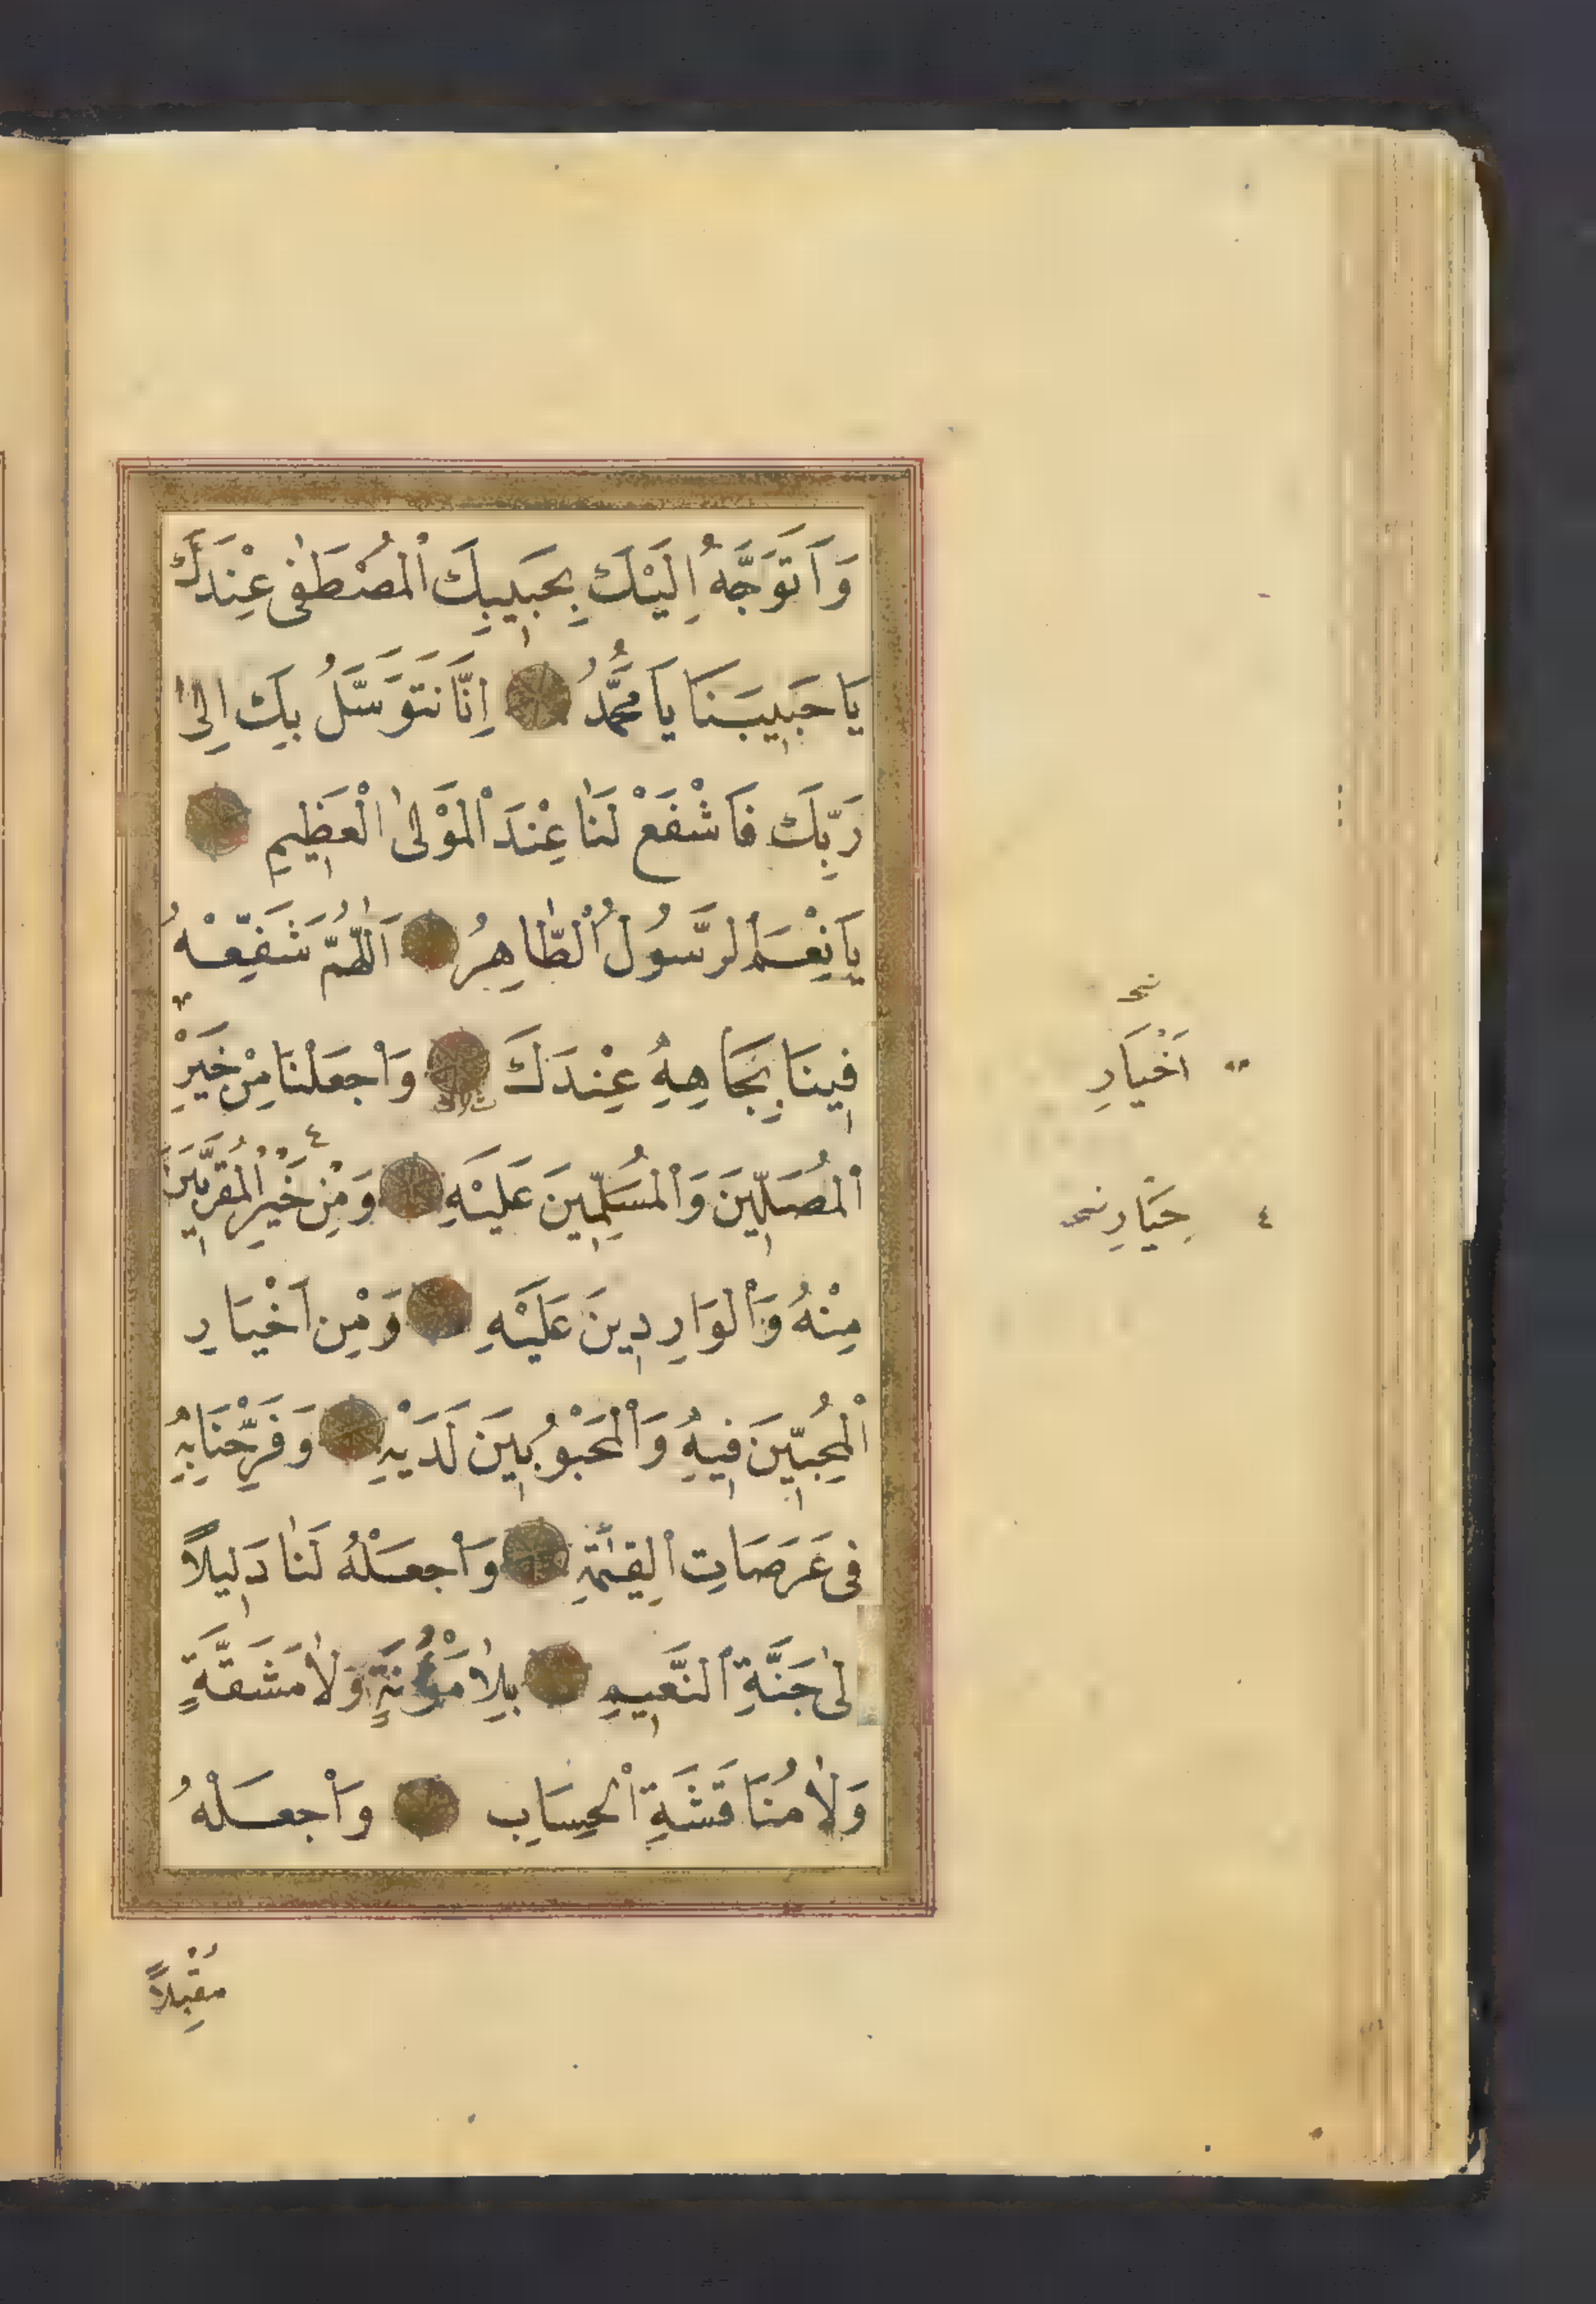 وَاَتَوَجَّهُ اِلَيْكَ بِحَبِيبِكَ اْلمُصْطَفٰى عِنْدَكَ
يَا حَبِيبَنَا يَا مُحَمَّدُ اِنَّا نَتَوَسَّلُ بِكَ اِلٰى
رَبِّكَ فَاشْفَعْ لَنَا عِنْدَ اْلمَوْلٰى اْلعَظِيمِ
يَا نِعْمَ الرَّسُولُ الطَّاهِرُ اَللّٰهُمَّ شَفِّعْهُ
فِينَا بِجَاهِهِ عِنْدَكَ وَاْجعَلْنَا مِنْ خَيْرِ
اْلمُصَلِّينَ وَاْلمُسَلِّمِينَ عَلَيْهِ وَمِنْ خَيْرِ اْلمُقَرَّبِينَ
مِنْهُ وَاْلوَارِدِينَ عَلَيْهِ وَمِنْ اَخْيَارِ
اْلمُحِبِّينَ فِيهِ وَاْلمَحْبُوبِينَ لَدَيْهِ وَفَرِّحْنَا بِهِ
فِى عَرَصَاتِ اْلقِيٰمَةِ وَاْجعَلْهُ لَنَا دَلِيلًا
لٰى جَنَّةِ النَّعِيمِ بِلَا مَؤُنَةٍ وَلَا مَشَقَّةٍ
وَلَا مُنَاقَشَةِ اْلحِسَابِ وَاْجعَلْهُ
مُقْبِلًا
اَخْيَارِ
٤ خِيَارِ